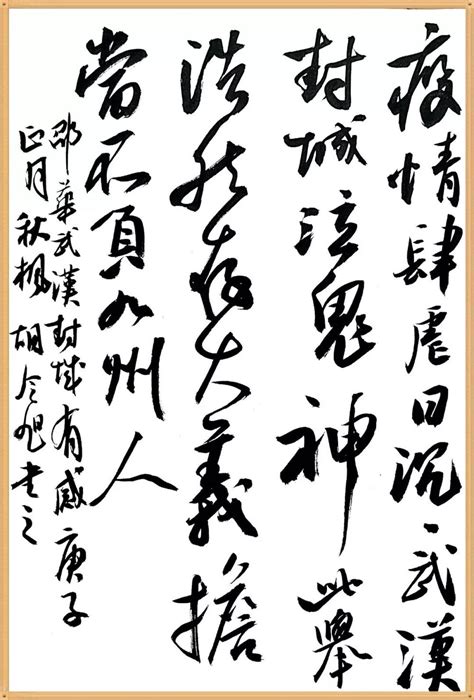 疫情肆虐日沉、武漢
封城泣鬼神此舉
浩然存大義擔
當不負九州人
邵華武漢封城有感庚子
正月秋楓胡令旭書之